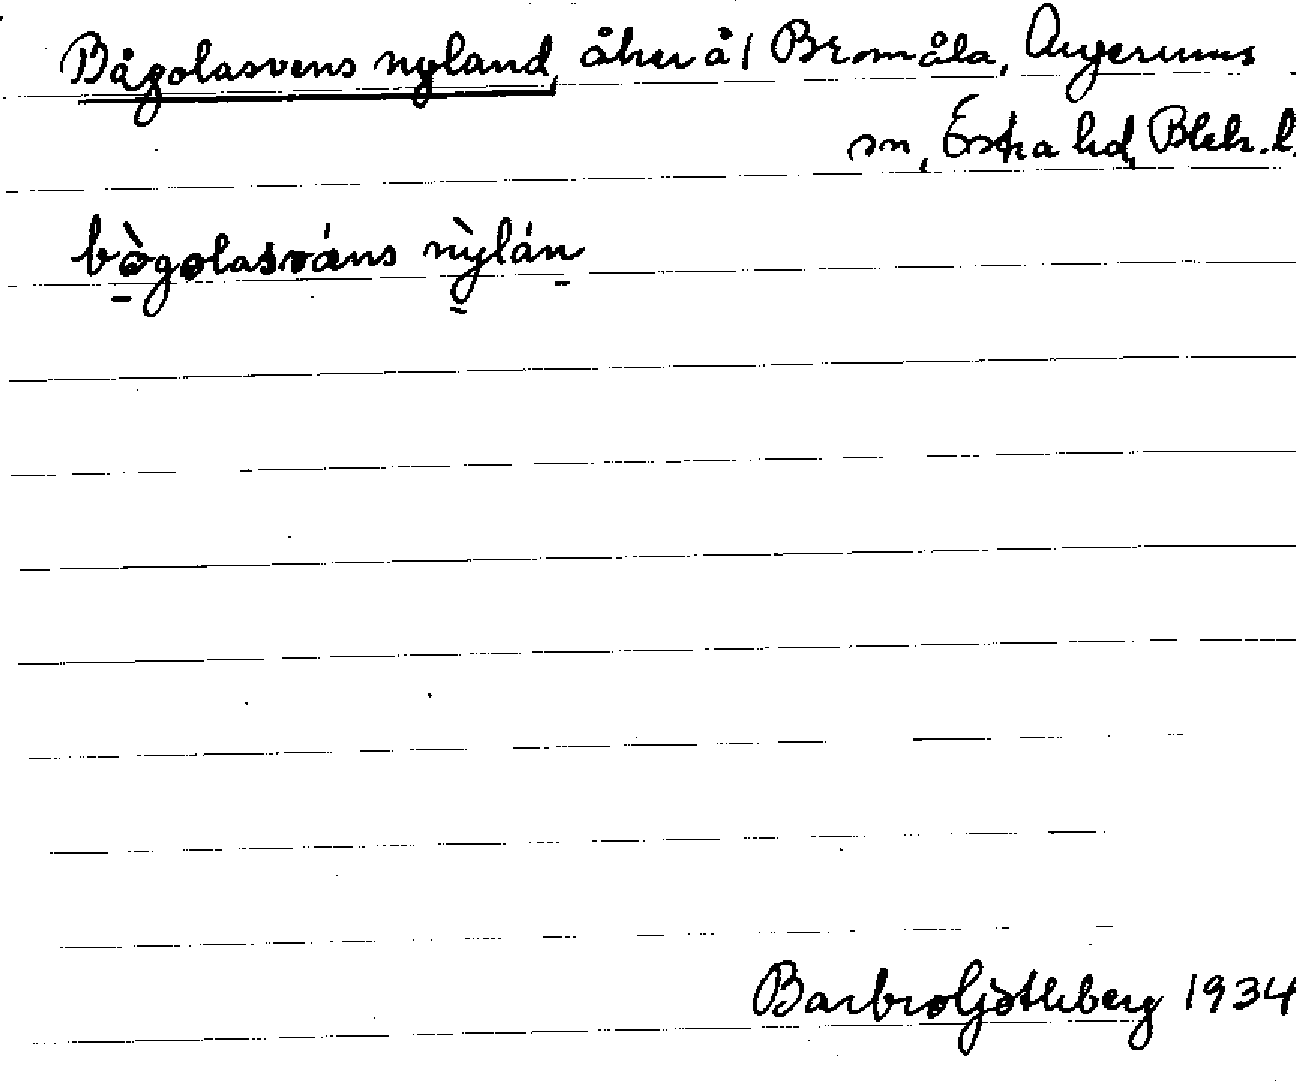 Bågolasvens nyland, åker å 1 Bromåla, Augerums
sn, Östra hd, Blek. l.
bògolasváns nỳlán
Barbro Götlberg 1934